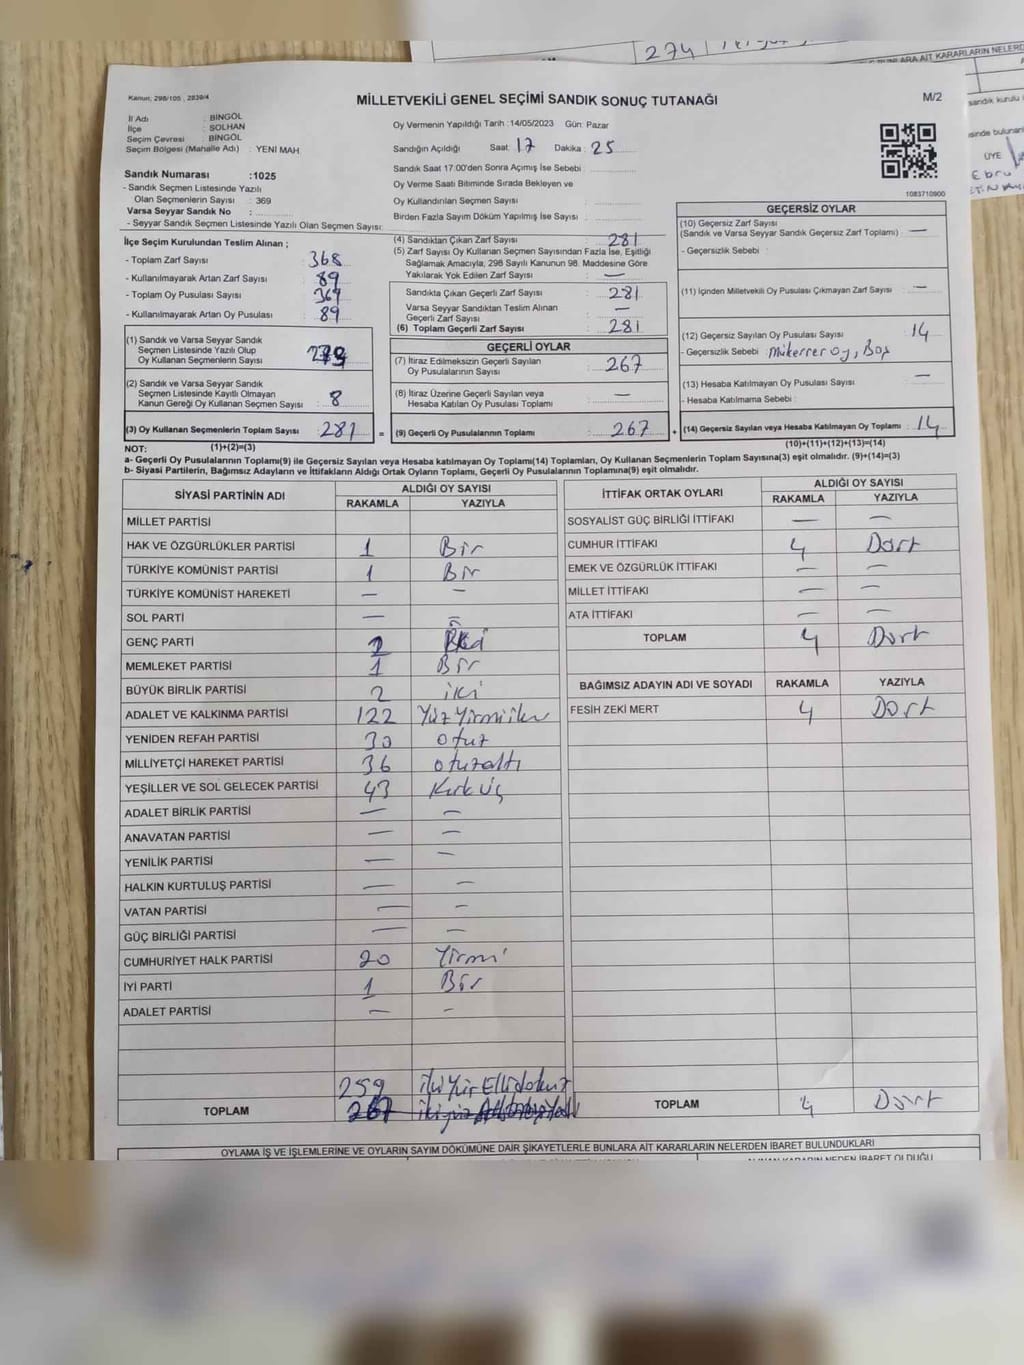 274
Kanun: 298/105 , 2839/4
MİLLETVEKİLİ GENEL SEÇİMİ SANDIK SONUÇ TUTANAĞI
M/2
İl Adı : BİNGÖL
İlçe : SOLHAN
Seçim Çevresi : BİNGÖL
Seçim Bölgesi (Mahalle Adı) : YENİ MAH.
Oy Vermenin Yapıldığı Tarih :14/05/2023 Gün: Pazar
Sandığın Açıldığı Saat: 17 Dakika : 25
Sandık Saat 17:00'den Sonra Açımış İse Sebebi :
Oy Verme Saati Bitiminde Sırada Bekleyen ve
Oy Kullandırılan Seçmen Sayısı :
Birden Fazla Sayım Döküm Yapılmış İse Sayısı :
1083710900
Sandık Numarası :1025
- Sandık Seçmen Listesinde Yazılı
Olan Seçmenlerin Sayısı : 369
Varsa Seyyar Sandık No :
- Seyyar Sandık Seçmen Listesinde Yazılı Olan Seçmen Sayısı:
İlçe Seçim Kurulundan Teslim Alınan ;
- Toplam Zarf Sayısı : 368
- Kullanılmayarak Artan Zarf Sayısı : 89
- Toplam Oy Pusulası Sayısı : 369
- Kullanılmayarak Artan Oy Pusulası : 89
(1) Sandık ve Varsa Seyyar Sandık
Seçmen Listesinde Yazılı Olup
Oy Kullanan Seçmenlerin Sayısı :
(2) Sandık ve Varsa Seyyar Sandık
Seçmen Listesinde Kayıtlı Olmayan
Kanun Gereği Oy Kullanan Seçmen Sayısı : 8
(3) Oy Kullanan Seçmenlerin Toplam Sayısı : 281 =
(4) Sandıktan Çıkan Zarf Sayısı : 281
(5) Zarf Sayısı Oy Kullanan Seçmen Sayısından Fazla İse, Eşitliği
Sağlamak Amacıyla, 298 Sayılı Kanunun 98. Maddesine Göre
Yakılarak Yok Edilen Zarf Sayısı : —
Sandıkta Çıkan Geçerli Zarf Sayısı : 281
Varsa Seyyar Sandıktan Teslim Alınan
Geçerli Zarf Sayısı : —
(6) Toplam Geçerli Zarf Sayısı : 281
GEÇERLİ OYLAR
(7) İtiraz Edilmeksizin Geçerli Sayılan
Oy Pusulalarının Sayısı : 267
(8) İtiraz Üzerine Geçerli Sayılan veya
Hesaba Katılan Oy Pusulası Toplamı : —
(9) Geçerli Oy Pusulalarının Toplamı : 267 +
GEÇERSİZ OYLAR
(10) Geçersiz Zarf Sayısı
(Sandık ve Varsa Seyyar Sandık Geçersiz Zarf Toplamı) : —
- Geçersizlik Sebebi :
(11) İçinden Milletvekili Oy Pusulası Çıkmayan Zarf Sayısı : —
(12) Geçersiz Sayılan Oy Pusulası Sayısı : 14
- Geçersizlik Sebebi : Mükerrer oy, Boş
(13) Hesaba Katılmayan Oy Pusulası Sayısı : —
- Hesaba Katılmama Sebebi :
(14) Geçersiz Sayılan veya Hesaba Katılmayan Oy Toplamı : 14
NOT: (1)+(2)=(3)
(10)+(11)+(12)+(13)=(14)
a- Geçerli Oy Pusulalarının Toplamı(9) ile Geçersiz Sayılan veya Hesaba katılmayan Oy Toplamı(14) Toplamları, Oy Kullanan Seçmenlerin Toplam Sayısına(3) eşit olmalıdır. (9)+(14)=(3)
b- Siyasi Partilerin, Bağımsız Adayların ve İttifakların Aldığı Ortak Oyların Toplamı, Geçerli Oy Pusulalarının Toplamına(9) eşit olmalıdır.
SİYASİ PARTİNİN ADI ALDIĞI OY SAYISI
RAKAMLA YAZIYLA
MİLLET PARTİSİ
HAK VE ÖZGÜRLÜKLER PARTİSİ 1 Bir
TÜRKİYE KOMÜNİST PARTİSİ 1 Bir
TÜRKİYE KOMÜNİST HAREKETİ — —
SOL PARTİ — —
GENÇ PARTİ 2 İki
MEMLEKET PARTİSİ 1 Bir
BÜYÜK BİRLİK PARTİSİ 2 iki
ADALET VE KALKINMA PARTİSİ 122 Yüz Yirmi iki
YENİDEN REFAH PARTİSİ 30 otuz
MİLLİYETÇİ HAREKET PARTİSİ 36 otuzaltı
YEŞİLLER VE SOL GELECEK PARTİSİ 43 Kırk üç
ADALET BİRLİK PARTİSİ — —
ANAVATAN PARTİSİ — —
YENİLİK PARTİSİ — —
HALKIN KURTULUŞ PARTİSİ — —
VATAN PARTİSİ — —
GÜÇ BİRLİĞİ PARTİSİ — —
CUMHURİYET HALK PARTİSİ 20 Yirmi
İYİ PARTİ 1 Bir
ADALET PARTİSİ — —
259 iki Yüz Elli dokuz
TOPLAM 267
İTTİFAK ORTAK OYLARI ALDIĞI OY SAYISI
RAKAMLA YAZIYLA
SOSYALİST GÜÇ BİRLİĞİ İTTİFAKI — —
CUMHUR İTTİFAKI 4 Dört
EMEK VE ÖZGÜRLÜK İTTİFAKI — —
MİLLET İTTİFAKI — —
ATA İTTİFAKI — —
TOPLAM 4 Dört
BAĞIMSIZ ADAYIN ADI VE SOYADI RAKAMLA YAZIYLA
FESİH ZEKİ MERT 4 Dört
TOPLAM 4 Dört
OYLAMA İŞ VE İŞLEMLERİNE VE OYLARIN SAYIM DÖKÜMÜNE DAİR ŞİKAYETLERLE BUNLARA AİT KARARLARIN NELERDEN İBARET BULUNDUKLARI
BUNLARA AİT KARARLARIN NELERDE
sandık kurulu
sinde bulunan
ÜYE
Ebru